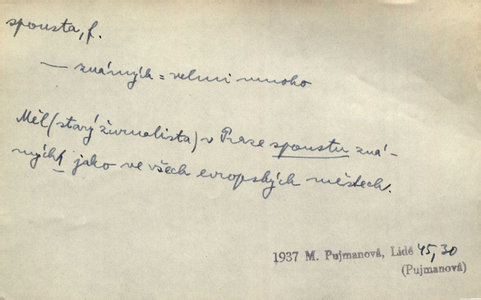 spousta, f.
— známých = velmi mnoho
Měl (starý žurnalista) v Praze spoustu zná-
mých, jako ve všech evropských městech.
1937 M. Pujmanová, Lidé 45,30
(Pujmanová)